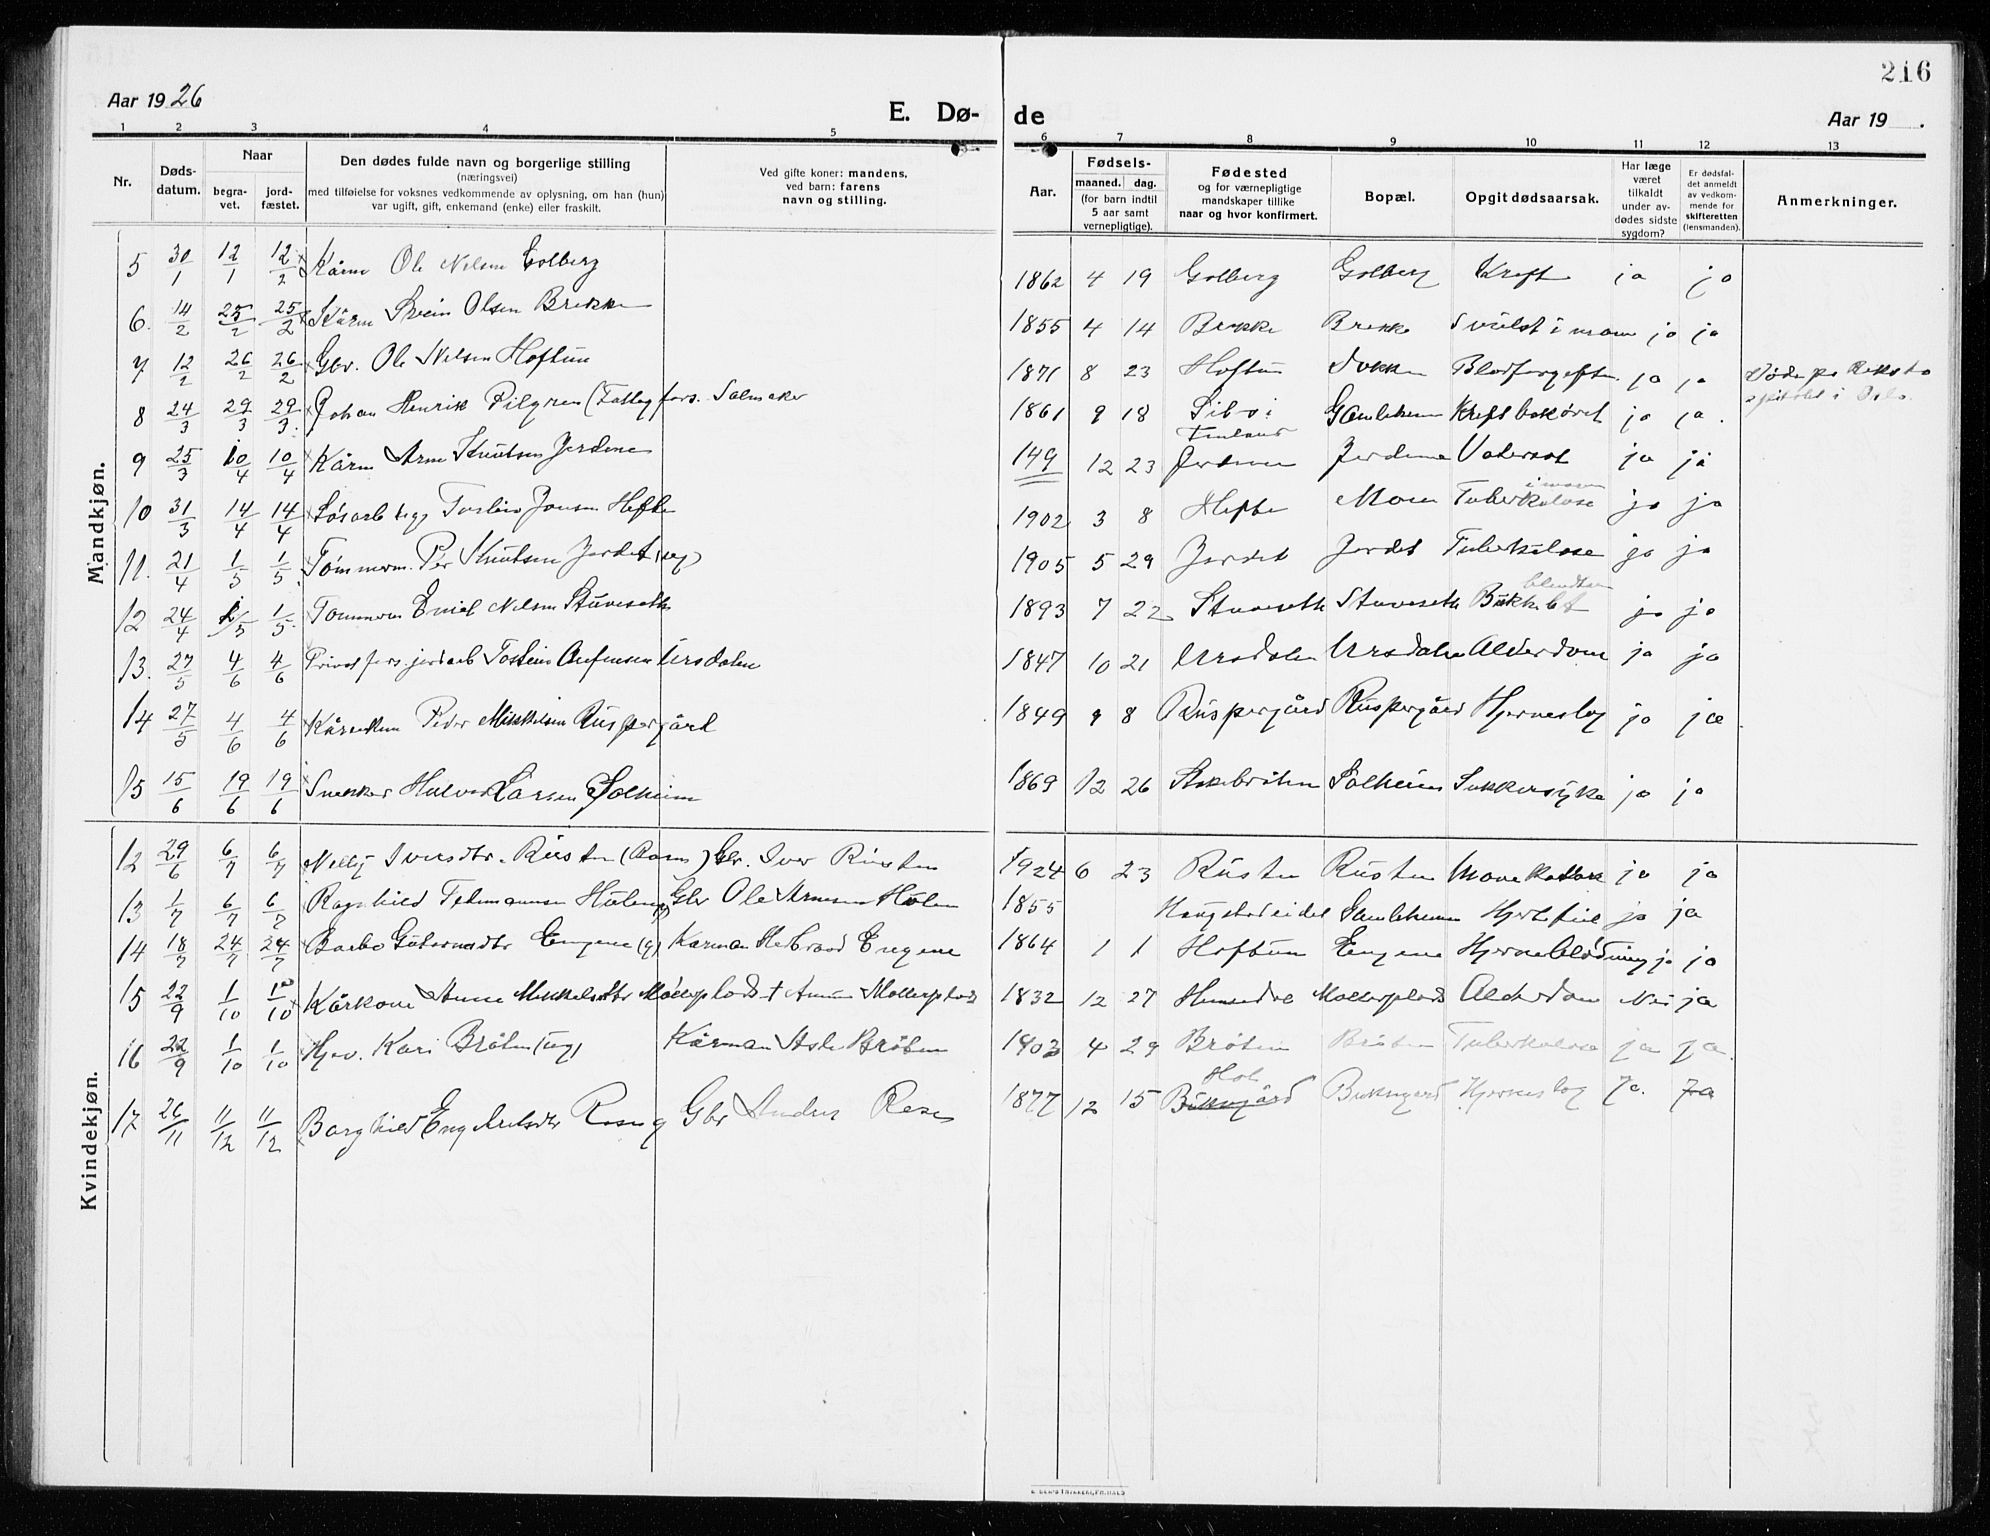 216
Aar 1926
E. Dø- de
Aar 19 .
1 2 3 4 5 6 7 8 9 10 11 12 13
Nr.
Døds-
datum.
Naar
begra-
vet.
jord-
fæstet.
Den dødes fulde navn og borgerlige stilling
(næringsvei)
med tilføielse for voksnes vedkommende av oplysning, om han (hun)
var ugift, gift, enkemand (enke) eller fraskilt.
Ved gifte koner: mandens,
ved barn: farens
navn og stilling.
Aar.
Fødsels-
maaned. dag.
(for barn indtil
5 aar samt
vernepligtige).
Fødested
og for værnepligtige
mandskaper tillike
naar og hvor konfirmert.
Bopæl.
Opgit dødsaarsak.
Har læge
været
tilkaldt
under av-
dødes sidste
sygdom?
Er dødsfal-
det anmeldt
av vedkom-
mende for
skifteretten
(lensmanden).
Anmerkninger.
Mandkjøn.
5 30/1 12/1 12/2 Kårm Ole Nilsen Golberg 1862 4 19 Golberg Golberg Kreft ja ja
6. 14/2 25/2 25/2 Kårm Svein Olsen Brekke 1855 4 14 Brekke Brekke Svulst i mave ja ja
7 12/2 26/2 26/2 Gbr. Ole Nilsen Hoftun 1871 8 23 Hoftun Dokken Blodforgiftn. ja ja Døde på Riks
8 24/3 29/3 29/3. Johan Henrik Pilgren (Fattigfors. Salmaker 1861 9 18 Sibo i Gamleheim Kreft ja ja.
Finland
9 25/3 10/4 10/4 Kårm Arne Knutsen Jordene 149 12 23 Jordene Jordene Vatersot ja ja
10 31/3 14/4 14/4 Løsarb Torleiv Jonsen Hefte 1902 3 8 Hefte Moen Tuberkulose ja ja
11. 21/4 1/5 1/5. Tømmerm. Per Knutsen Jordet (ug) 1905 5 29 Jordet Jordet Tuberkulose ja ja
12 24/4 1/5 1/5. Tømmerm Emil Nilsen Stuveseth 1893 7 22 Stuveseth Stuveseth ja ja
13. 27/5 4/6 4/6 Privat fors. jordarb Tostein Anfinsen Ursdalen 1847 10 21 Ursdalen Ursdalen Alderdom ja ja
14 27/5 4/6 4/6 Kårenkem Peder Mikkelsen Ruspergård 1849 9 8 Ruspergård Ruspergård Hjerneslag ja ja
15 15/6 19/6 19/6 Snekker Halvor Larsen Solheim 1869 12 26 Skebråten Solheim Sukkersyke ja ja
Kvindekjøn.
12 29/6 6/7 6/7 Nelly Iversdtr. Rusten (Barn) Gbr. Iver Rusten 1924 6 23 Rusten Rusten Mavekatarr ja ja
13 1/7 6/7 6/7 Ragnhild Holen Gbr Ole Arnesen Holen 1855 Haugstadeidet Gamleheim Hjertefeil ja ja
14 18/7 24/7 24/7 Barbo Engene (g) Kårman Herbrand Engene 1864 1 1 Hoftun Engene Hjerneblødning ja ja
15 22/9 1/10 1/10 Kårkone Anne Mikkelsdtr Møllerplads † Møllerplads 1832 12 27 Hemsedal Møllerplads Alderdom Nei ja
16 22/9 1/10 1/10 Hjv. Kari Bråten (ug) Kårman Asle Bråten 1903 4 29 Bråten Bråten Tuberkulose ja ja.
17 26/11 11/12 11/12 Borghild Engebretsdtr Gbr Anders 1877 12 15 Hol Bukngård Bukngard Hjerneslag Ja. Ja